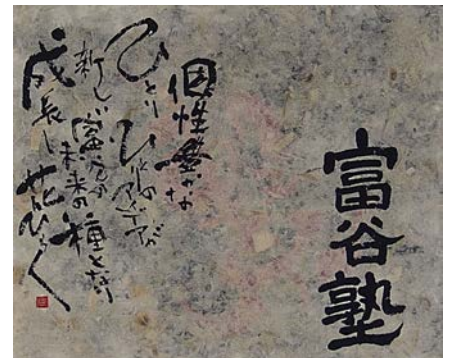 富谷塾
個性豊かな
ひとりひとりのアイデアが
新しい富谷の未来の種となり
成長し花ひらく